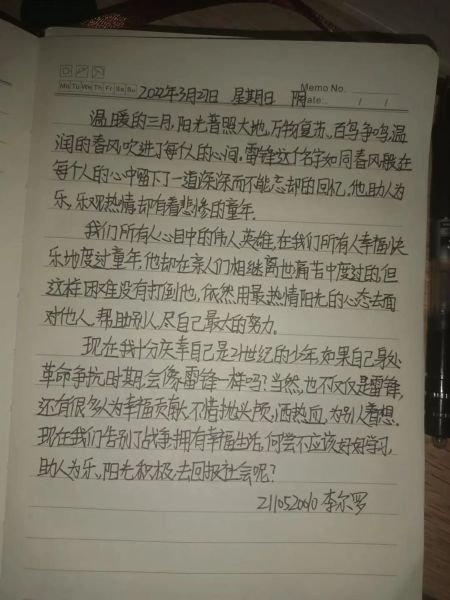 Memo No.
Mo Tu We Th Fr Sa Su Date: / /
2022年3月27日 星期日 阴
温暖的三月,阳光普照大地,万物复苏、百鸟争鸣,温
润的春风吹进了每个人的心间,雷锋这个名字如同春风般在
每个人的心中留下了一道深深而不能忘却的回忆,他助人为
乐,乐观热情却有着悲惨的童年。
我们所有人心目中的伟人英雄,在我们所有人幸福快
乐地度过童年,他却在亲人们相继离世痛苦中度过的,但
这样困难没有打倒他,依然用最热情阳光的心态去面
对他人,帮助别人,尽自己最大的努力。
现在我十分庆幸自己是21世纪的少年,如果自己身处
革命争抗时期,会像雷锋一样吗?当然,也不仅仅是雷锋,
还有很多人为幸福贡献,不惜抛头颅,洒热血,为别人着想。
现在我们告别了战争,拥有幸福生活,何尝不应该好好学习,
助人为乐、阳光积极,去回报社会呢?
21105200 李尔罗